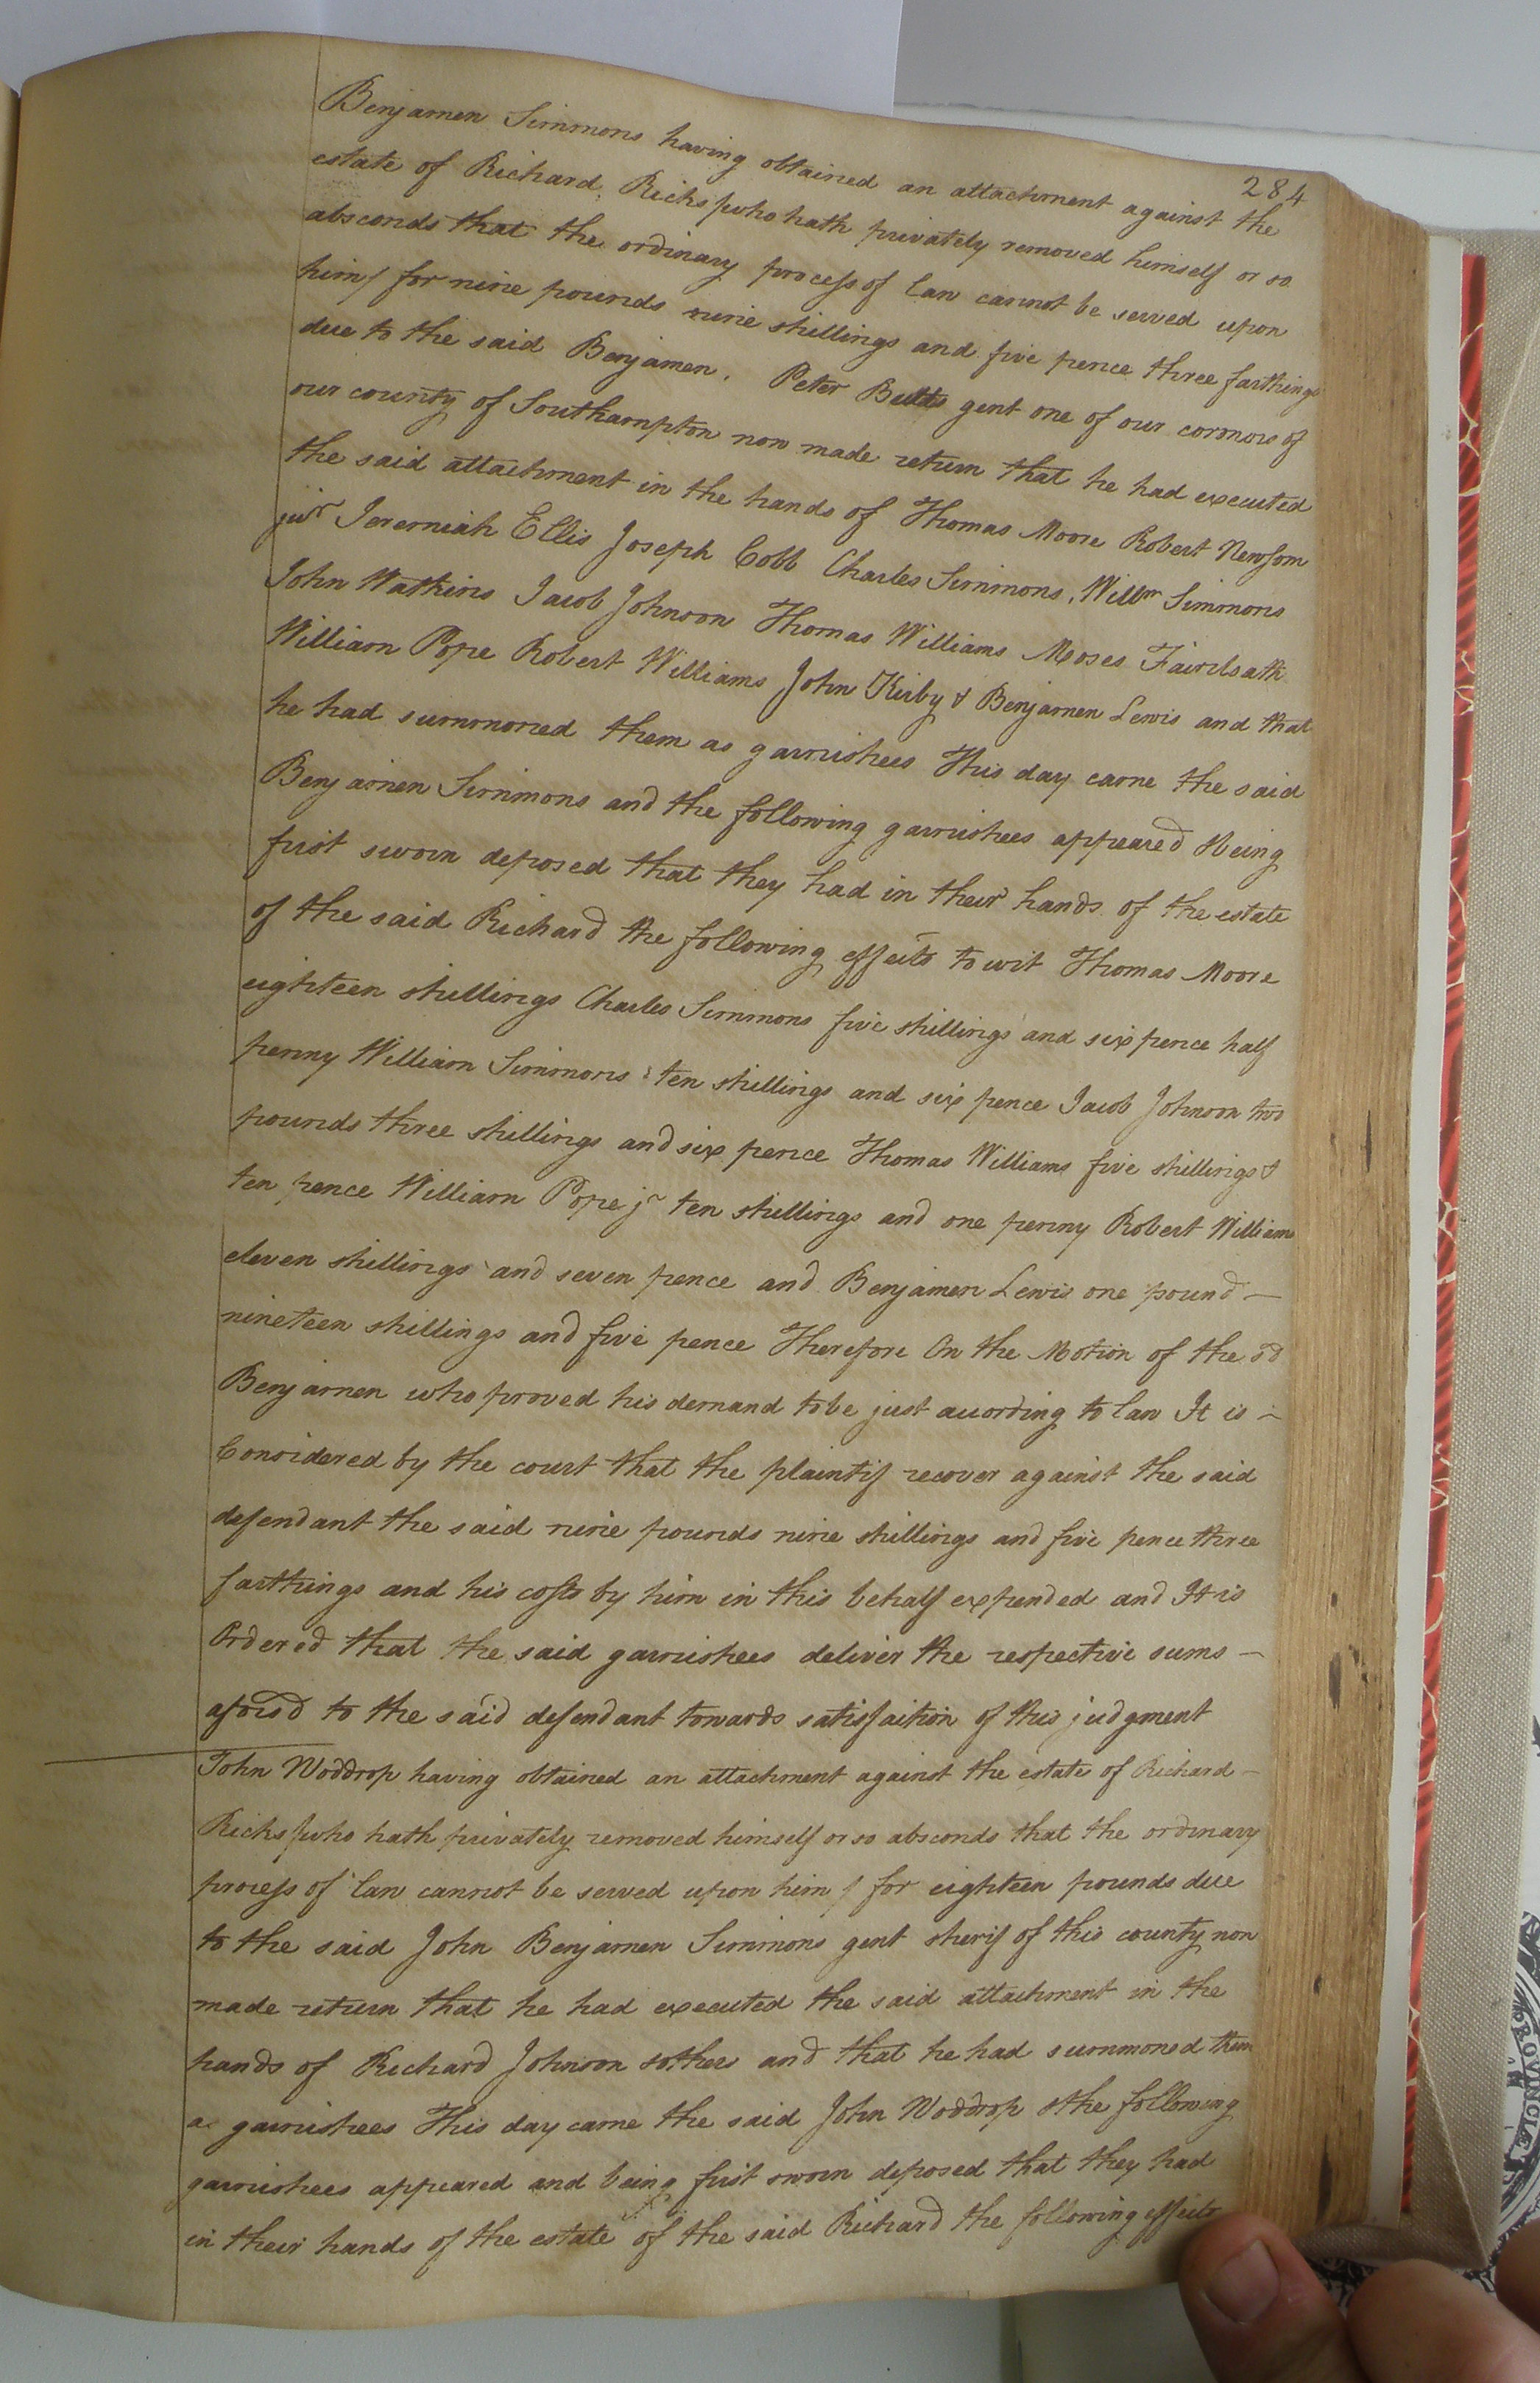 284
Benjamen Simmons having obtained an attachment against the
estate of Richard Ricks /who hath privately removed himself or so
absconds that the ordinary process of law cannot be served upon
him/ for nine pounds nine shillings and five pence three farthings
due to the said Benjamen. Peter Butts gent one of our coroners of
our county of Southampton now made return that he had executed
the said attachment in the hands of Thomas Moore Robert Newsom
junr Jeremiah Ellis Joseph Cobb Charles Simmons, Willm Simmons
John Watkins Jacob Johnson Thomas Williams Moses
William Pope Robert Williams John Kirby & Benjamen Lewis and that
he had summoned them as garnishees This day came the said
Benjamen Simmons and the following garnishees appeared &being
first sworn deposed that they had in their hands of the estate
of the said Richard the following effects to wit Thomas Moore
eighteen shillings Charles Simmons five shillings and six pence half
penny William Simmons ten shillings and six pence Jacob Johnson two
pounds three shillings and six pence Thomas Williams five shillings &
ten pence William Pope jr ten shillings and one penny Robert Williams
eleven shillings and seven pence and Benjamen Lewis one pound —
nineteen shillings and five pence Therefore On the Motion of the sd
Benjamen who proved his demand to be just according to law It is —
Considered by the court that the plaintif recover against the said
defendant the said nine pounds nine shillings and five pence three
farthings and his costs by him in this behalf expended and It is
Ordered that the said garnishees deliver the respective sums —
aforesd to the said defendant towards satisfaction of this judgment
John Woddrop having obtained an attachment against the estate of Richard —
Ricks /who hath privately removed himself or so absconds that the ordinary
process of law cannot be served upon him / for eighteen pounds due
to the said John Benjamen Simmons gent sherif of this county now
made return that he had executed the said attachment in the
hands of Richard Johnson &others and that he had summoned them
as garnishees This day came the said John Woddrop &the following
garnishees appeared and being first sworn deposed that they had
in their hands of the estate of the said Richard the following effects